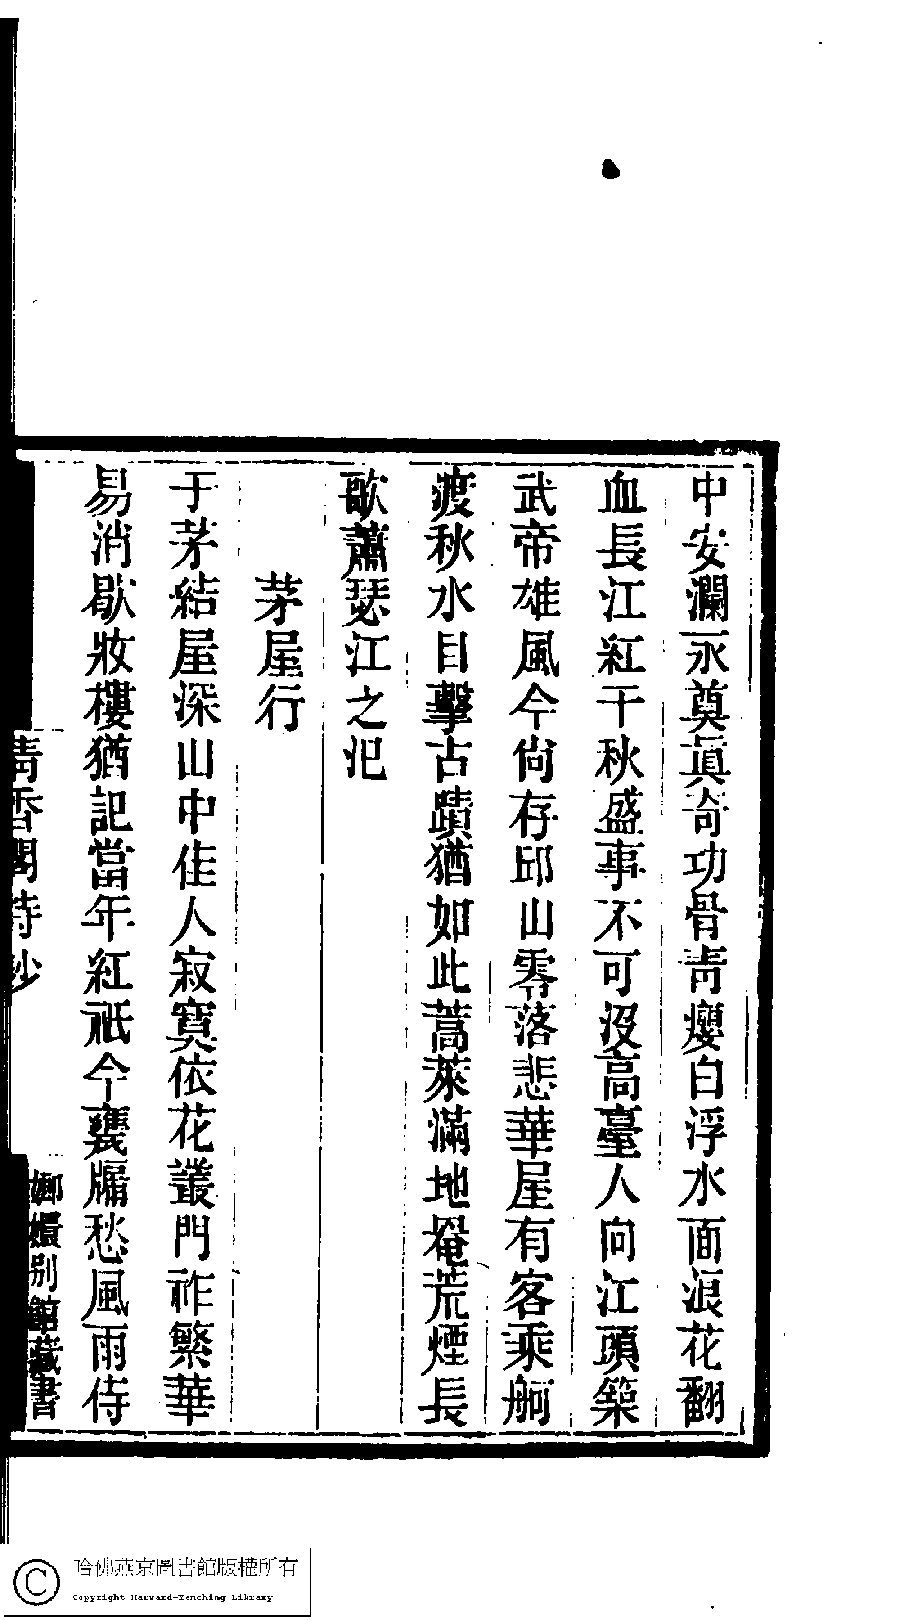 中安瀾永奠眞奇功骨靑癭白浮水面浪花翻
血長江紅千秋盛事不可沒高臺人向江頭築
武帝雄風今尙存邱山零落悲華屋有客乘舸
渡秋水目擊古蹟猶如此蒿萊滿地罨荒煙長
歌蕭瑟江之汜
茅屋行
于茅結屋深山中佳人寂寞依花叢門祚繁華
易消歇妝樓猶記當年紅祇今甕牖愁風雨侍
清香閣詩鈔
嫏嬛別館藏書
哈佛燕京圖書館版權所有
Copyright Harvard-Yenching Library